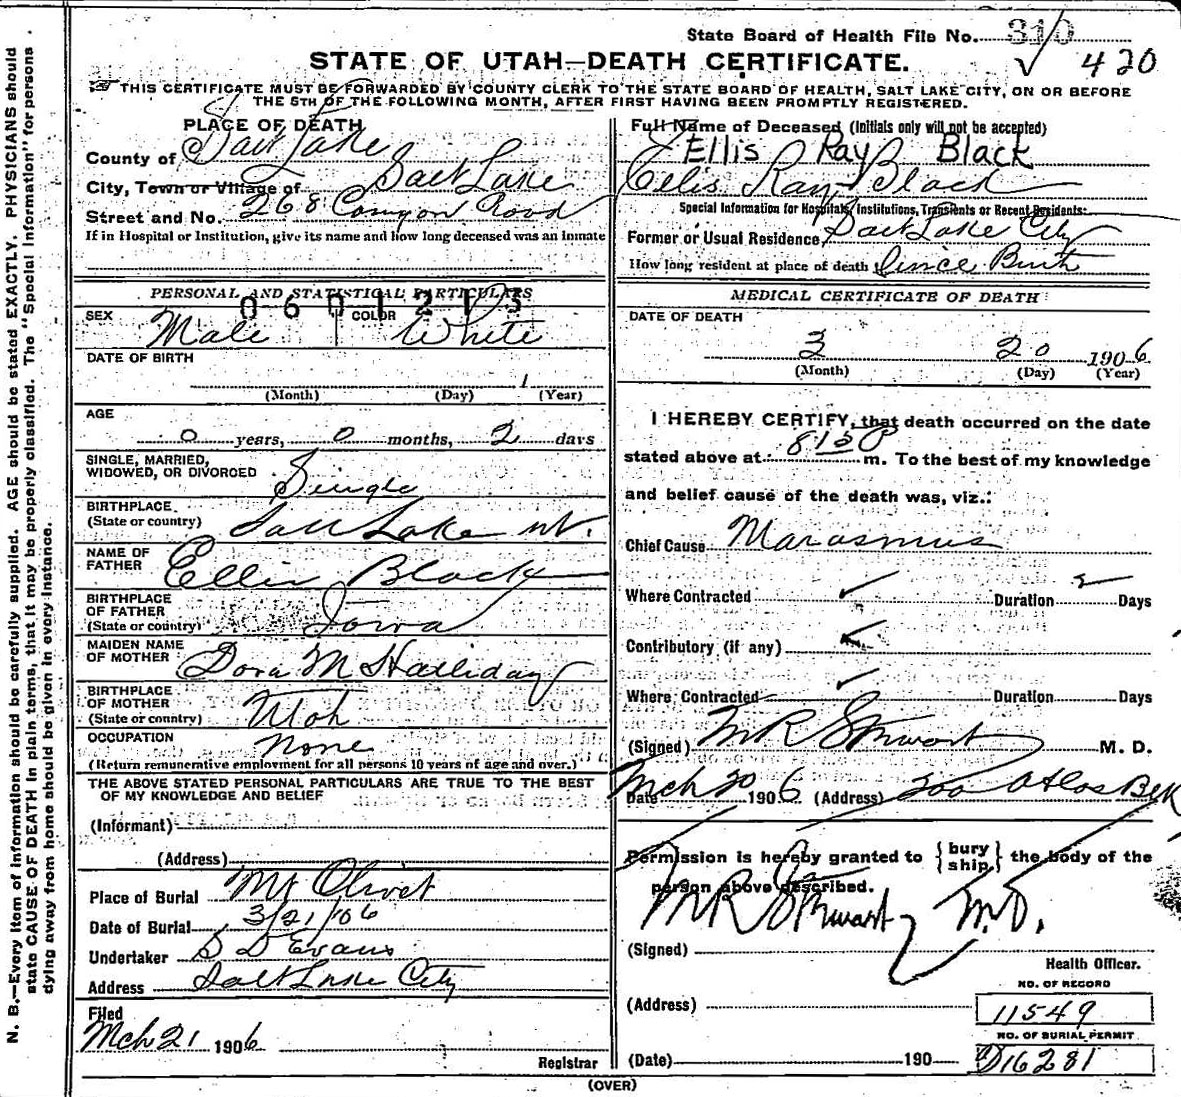 State Board of Health File No. 310
420
STATE OF UTAH—DEATH CERTIFICATE.
THIS CERTIFICATE MUST BE FORWARDED BY COUNTY CLERK TO THE STATE BOARD OF HEALTH, SALT LAKE CITY, ON OR BEFORE
THE 5TH OF THE FOLLOWING MONTH, AFTER FIRST HAVING BEEN PROMPTLY REGISTERED.
N. B.—Every item of information should be carefully supplied. AGE should be stated EXACTLY. PHYSICIANS should
state CAUSE OF DEATH in plain terms, that it may be properly classified. The "Special Information" for persons
dying away from home should be given in every instance.
PLACE OF DEATH
County of Salt Lake
City, Town or Village of Salt Lake
Street and No. 268 Canyon Road
If in Hospital or Institution, give its name and how long deceased was an inmate
PERSONAL AND STATISTICAL PARTICULARS
0601213
SEX Male COLOR White
DATE OF BIRTH
1
(Month) (Day) (Year)
AGE
0 years, 0 months, 2 days
SINGLE, MARRIED,
WIDOWED, OR DIVORCED Single
BIRTHPLACE
(State or country) Salt Lake ut.
NAME OF
FATHER Ellis Black
BIRTHPLACE
OF FATHER
(State or country) Iowa
MAIDEN NAME
OF MOTHER Dora M Halliday
BIRTHPLACE
OF MOTHER
(State or country) Utah
OCCUPATION None
(Return remunerative employment for all persons 10 years of age and over.)
THE ABOVE STATED PERSONAL PARTICULARS ARE TRUE TO THE BEST
OF MY KNOWLEDGE AND BELIEF
(Informant)
(Address)
Place of Burial Mt Olivet
Date of Burial 3/21/06
Undertaker S D Evans
Address Salt Lake City
Filed
Mch 21 1906
Registrar
Full Name of Deceased (Initials only will not be accepted)
Ellis Ray Black
Ellis Ray Black
Special Information for Hospitals, Institutions, Transients or Recent Residents:
Former or Usual Residence Salt Lake City
How long resident at place of death Since Birth
MEDICAL CERTIFICATE OF DEATH
DATE OF DEATH
3 20 1906
(Month) (Day) (Year)
I HEREBY CERTIFY, that death occurred on the date
stated above at 8:30 P m. To the best of my knowledge
and belief cause of the death was, viz.:
Chief Cause Marasmus
Where Contracted Duration 2 Days
Contributory (if any)
Where Contracted Duration Days
(Signed) M R Stewart M. D.
Date Mch 20 1906 (Address) 200 Atlas Blk
Permission is hereby granted to {bury ship} the body of the
person above described.
M R Stewart M.D.
(Signed)
Health Officer.
NO. OF RECORD
(Address) 11549
NO. OF BURIAL PERMIT
(Date) 190 D16281
(OVER)